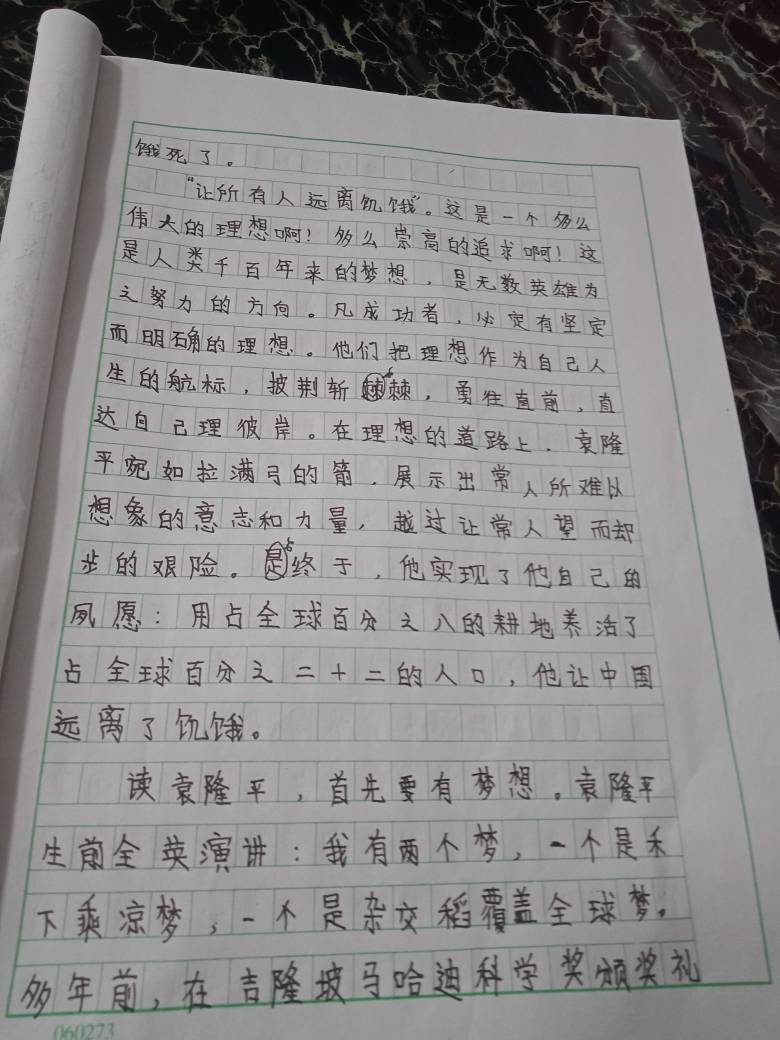 饿死了。
“让所有人远离饥饿”。这是一个多么
伟大的理想啊！多么崇高的追求啊！这
是人类千百年来的梦想，是无数英雄为
之努力的方向。凡成功者，必定有坚定
而明确的理想。他们把理想作为自己人
生的航标，披荆斩棘，勇往直前，直
达自己理彼岸。在理想的道路上，袁隆
平宛如拉满弓的箭，展示出常人所难以
想象的意志和力量，越过让常人望而却
步的艰险。终于，他实现了他自己的
夙愿：用占全球百分之八的耕地养活了
占全球百分之二十二的人口，他让中国
远离了饥饿。
读袁隆平，首先要有梦想。袁隆平
生前全英演讲：我有两个梦，一个是禾
下乘凉梦，一个是杂交稻覆盖全球梦。
多年前，在吉隆坡马哈迪科学奖颁奖礼
060273